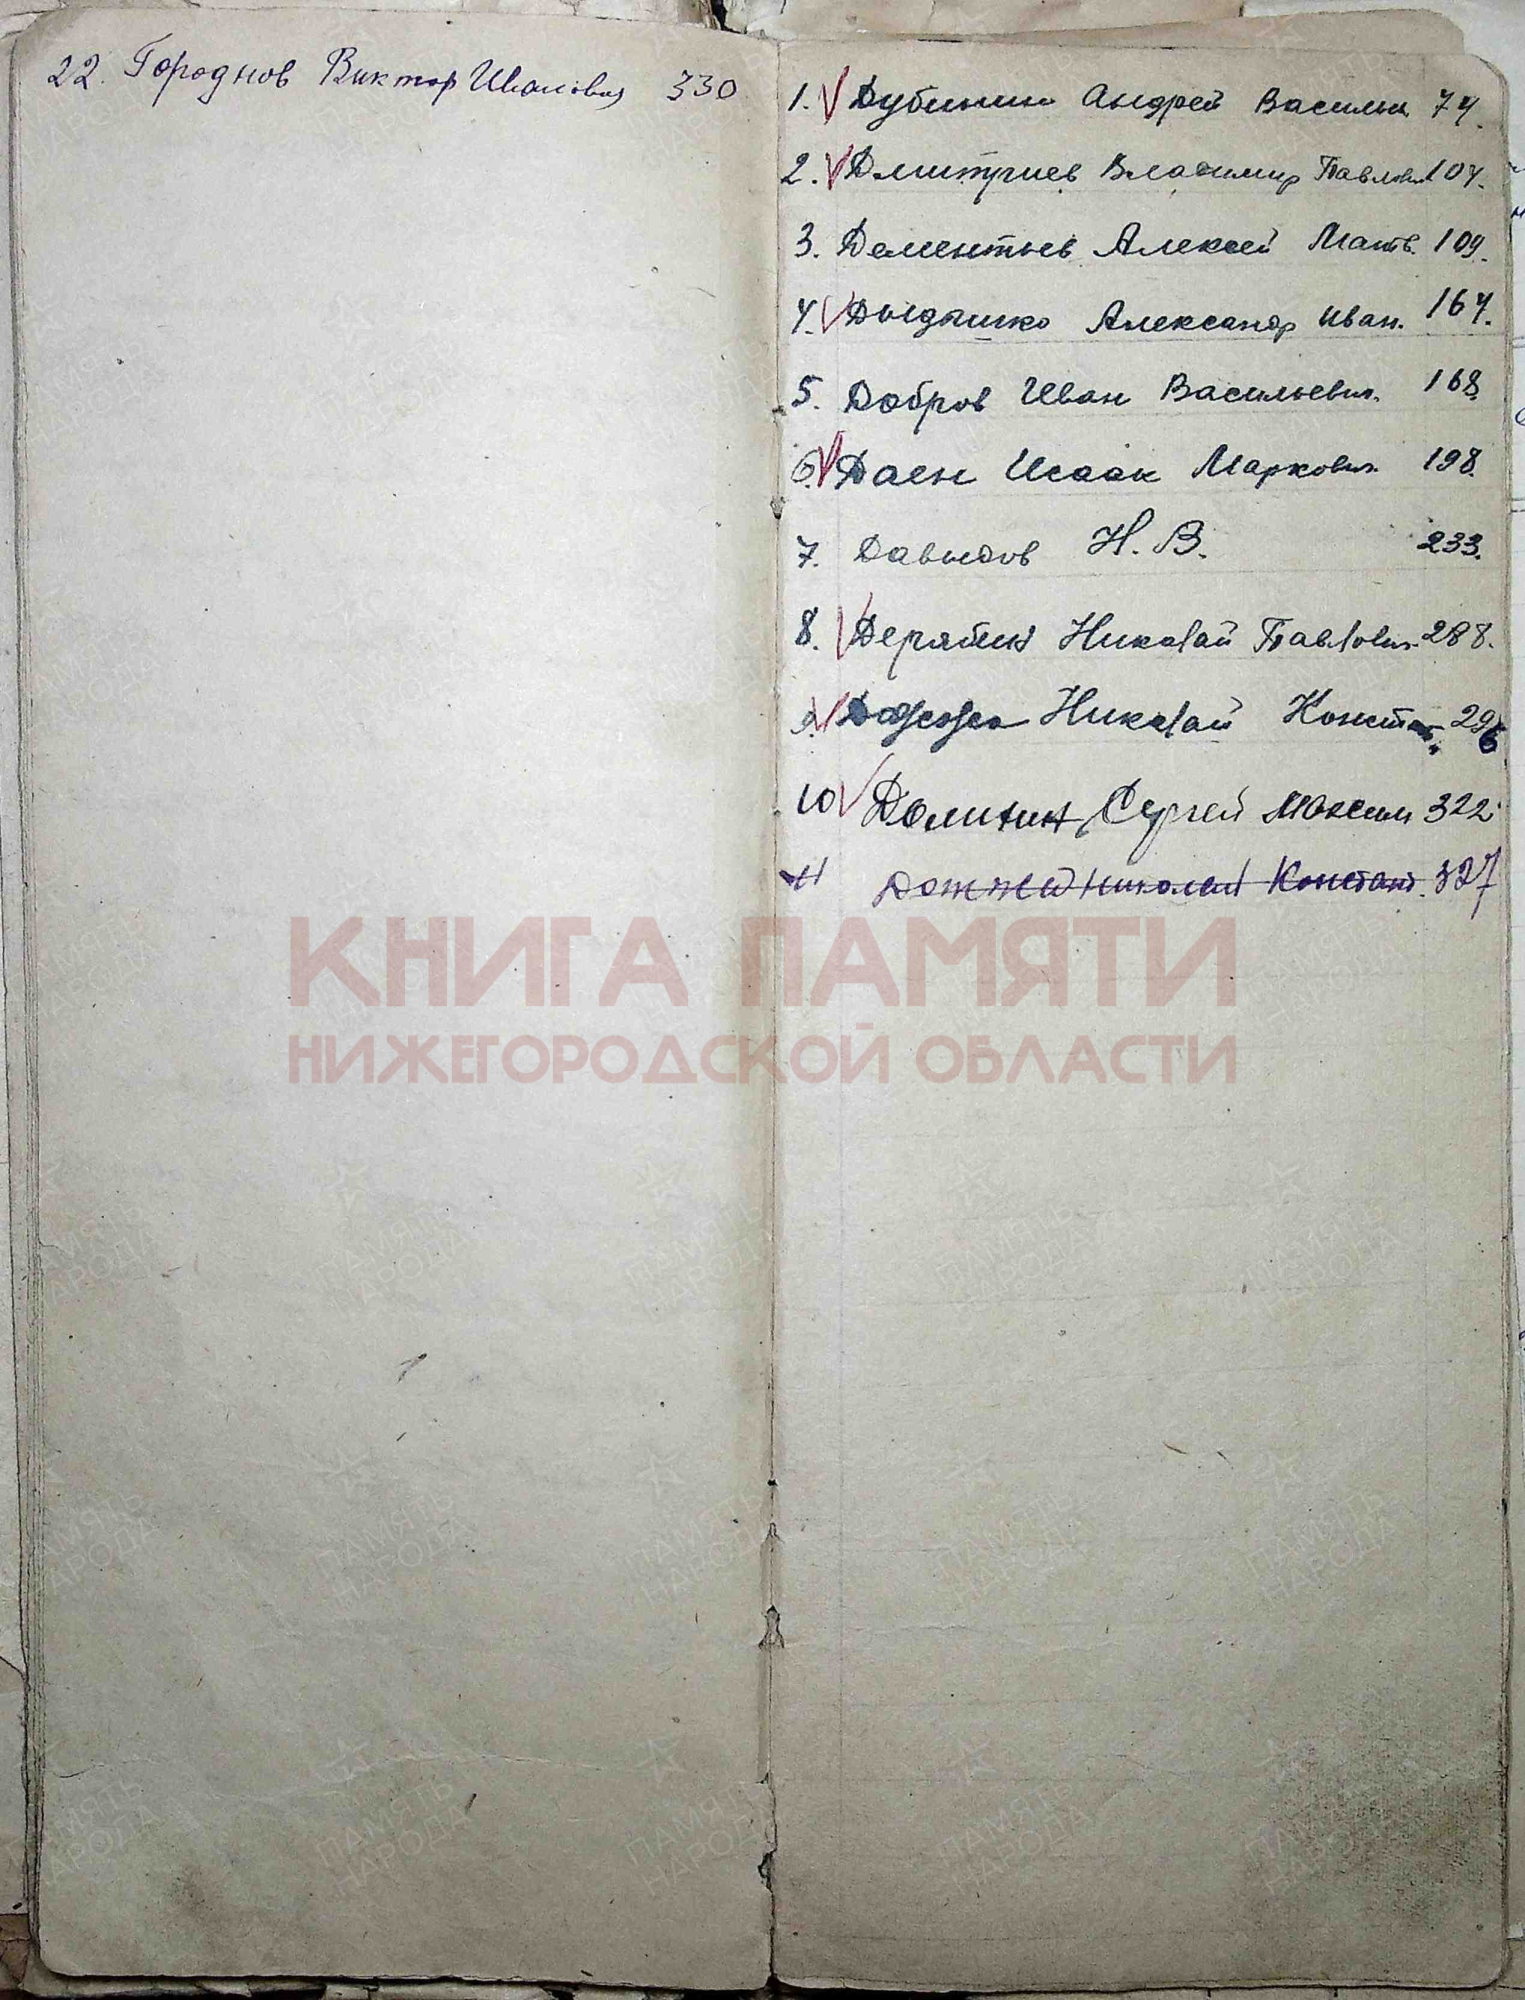 22. Городнов Виктор Иванович 330
1. Дубинин Андрей Василь 74.
2. Дмитриев Владимир Павлович 104.
3. Дементьев Алексей Матв. 109.
4. Дыдышко Александр Иван. 164.
5. Добров Иван Васильевич. 168.
6. Даен Исаак Маркович. 198.
7. Давыдов Н. В. 233.
8. Дерябин Николай Павлович. 288.
9. Николай Конст 296
10 Долинин Сергей Максим 322
11 Николай Констант. 327
КНИГА ПАМЯТИ
НИЖЕГОРОДСКОЙ ОБЛАСТИ
ПАМЯТЬ
НАРОДА